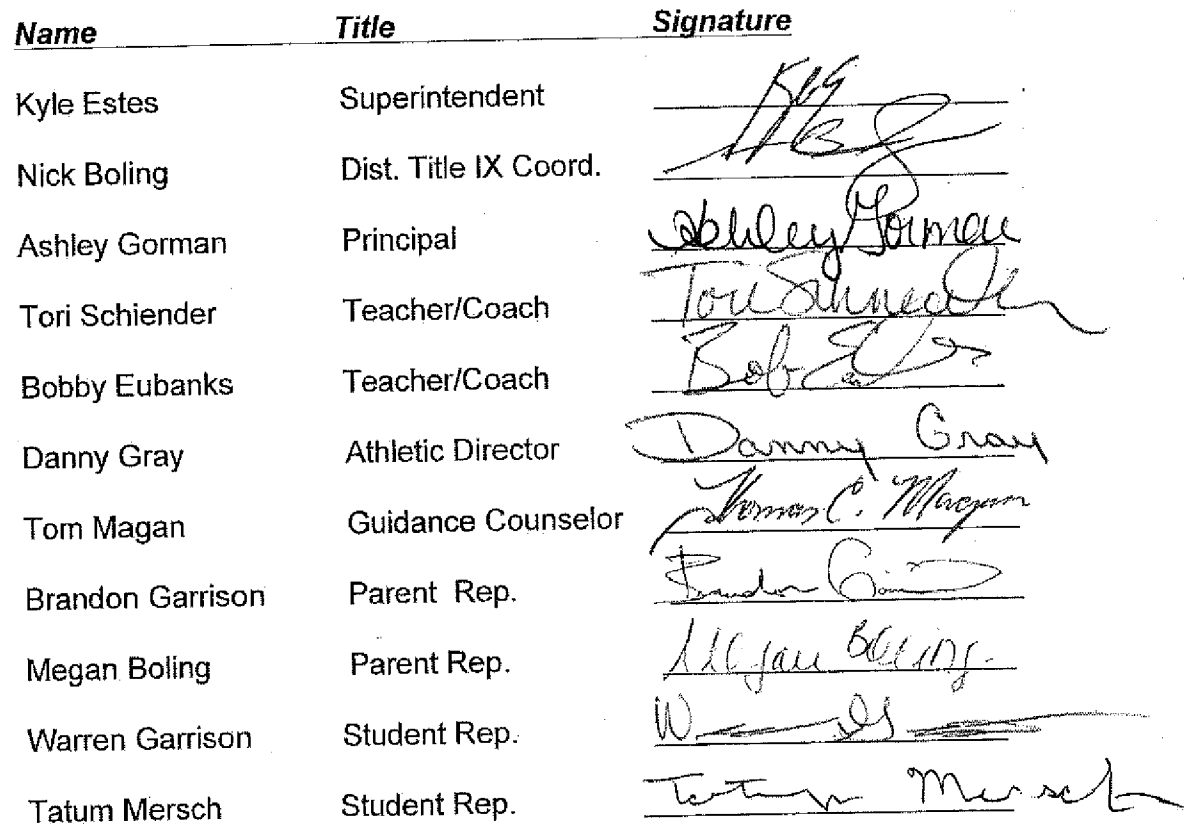 Name Title Signature
Kyle Estes Superintendent
Nick Boling Dist. Title IX Coord.
Ashley Gorman Principal Ashley Gorman
Tori Schiender Teacher/Coach Tori
Bobby Eubanks Teacher/Coach Bob
Danny Gray Athletic Director Danny Gray
Tom Magan Guidance Counselor Thomas C. Magan
Brandon Garrison Parent Rep. Brandon
Megan Boling Parent Rep. Megan Boling
Warren Garrison Student Rep.
Tatum Mersch Student Rep. Tatum Mersch